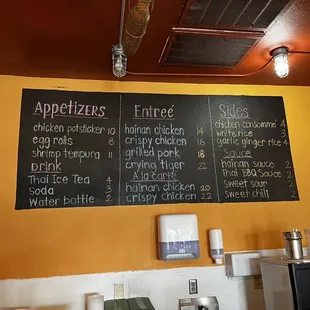 Appetizers
chicken potsticker 10
egg rolls 8
shrimp tempura 11
drink
Thai Ice Tea 4
Soda 3
Water bottle 2
Entreé
hainan chicken 14
crispy chicken 16
grilled pork 18
crying tiger 22
A la carte
hainan chicken 20
crispy chicken 22
Sides
chicken consommé 4
white rice 3
garlic ginger rice 4
Sauce
hainan sauce 2
Thai BBQ Sauce 2
sweet sour 2
sweet chili 2